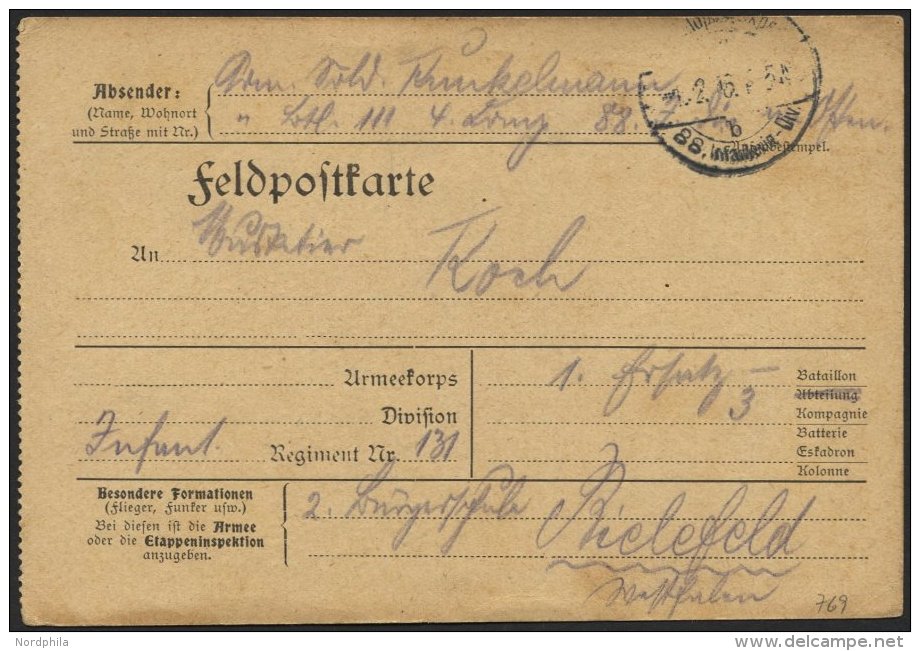 Absender:
(Name, Wohnort
und Straße mit Nr.)
Arm. Sold. Kunkelmann
" Btl. 111 4. Komp. 88. Osten.
2. 16.
b
88. Infanterie-Div.
Feldpoststempel.
Feldpostkarte
An Musketier Koch
Armeekorps
Division
Infant. Regiment Nr. 131
1. Ersatz – Bataillon
Abteilung
3 Kompagnie
Batterie
Eskadron
Kolonne
Besondere Formationen
(Flieger, Funker usw.)
Bei diesen ist die Armee
oder die Etappeninspektion
anzugeben.
2. Bürgerschule Bielefeld
Westfalen
769
Nordphila